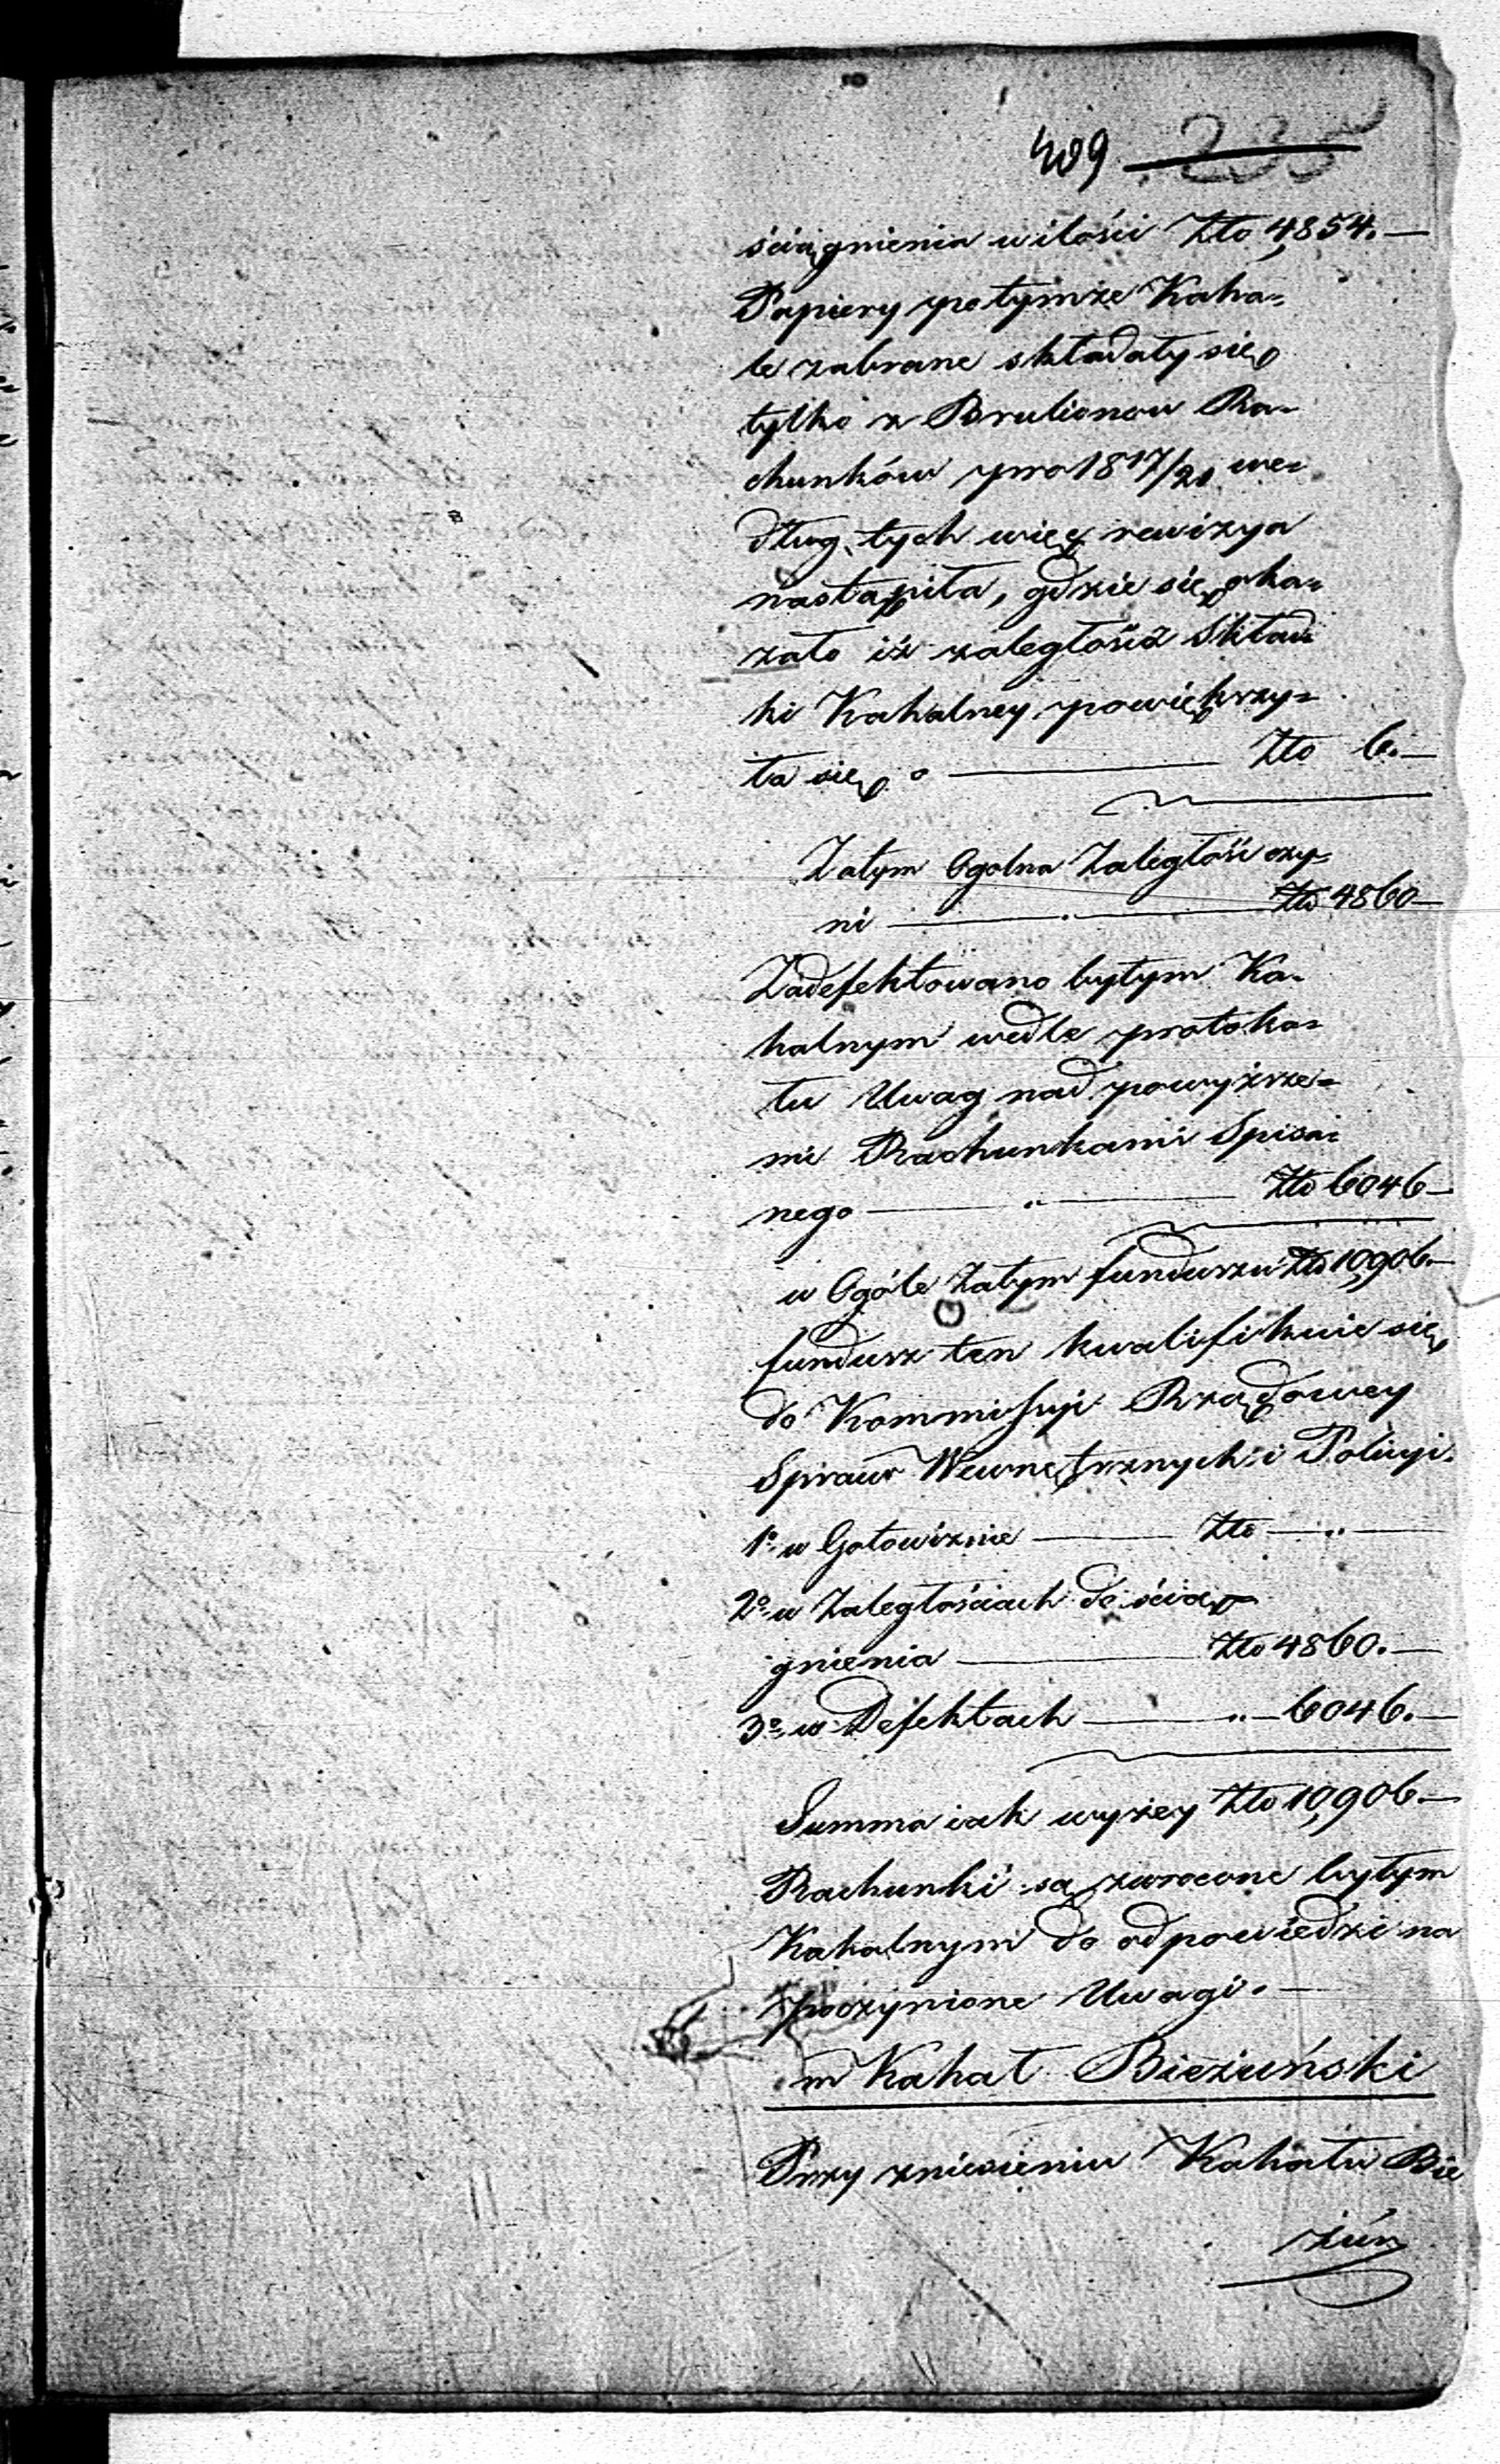 409 235
ściągnienia w ilości Złto 4,854.—
Papiery po tymże Kaha=
le zabrane składały się
tylko z Brulionow Ra=
chunków pro 1817/21 we=
dług tych więc rewizya
nastąpiła, gdzie się oka=
zało iż zaległość Skład=
ki Kahalney powiększy=
ła się o — Złto 6.—
Zatym Ogolna Zaległość czy=
ni — Złto 4860—
Zadefektowano byłym Ka=
halnym wedle protoko=
łu Uwag nad powyższe=
mi Rachunkami Spisa=
nego — Złto 6046—
w Ogóle Zatym funduszu Złto 10,906—
fundusz ten kwalifikuie się
do Kommissyi Rządowey
Spraw Wewnętrznych i Policyi.
1o w Gotowiźnie — Złto — " —
2o w Zaległościach do ścią=
gnienia — Złto 4860.—
3o w Defektach — " — 6046.—
Summa iak wyżey Złto 10,906—
Rachunki są zwrocone byłym
Kahalnym do odpowiedzi na
poczynione Uwagi.—
m Kahał Bieżuński
Przy zniesieniu Kahału Bie
żuń